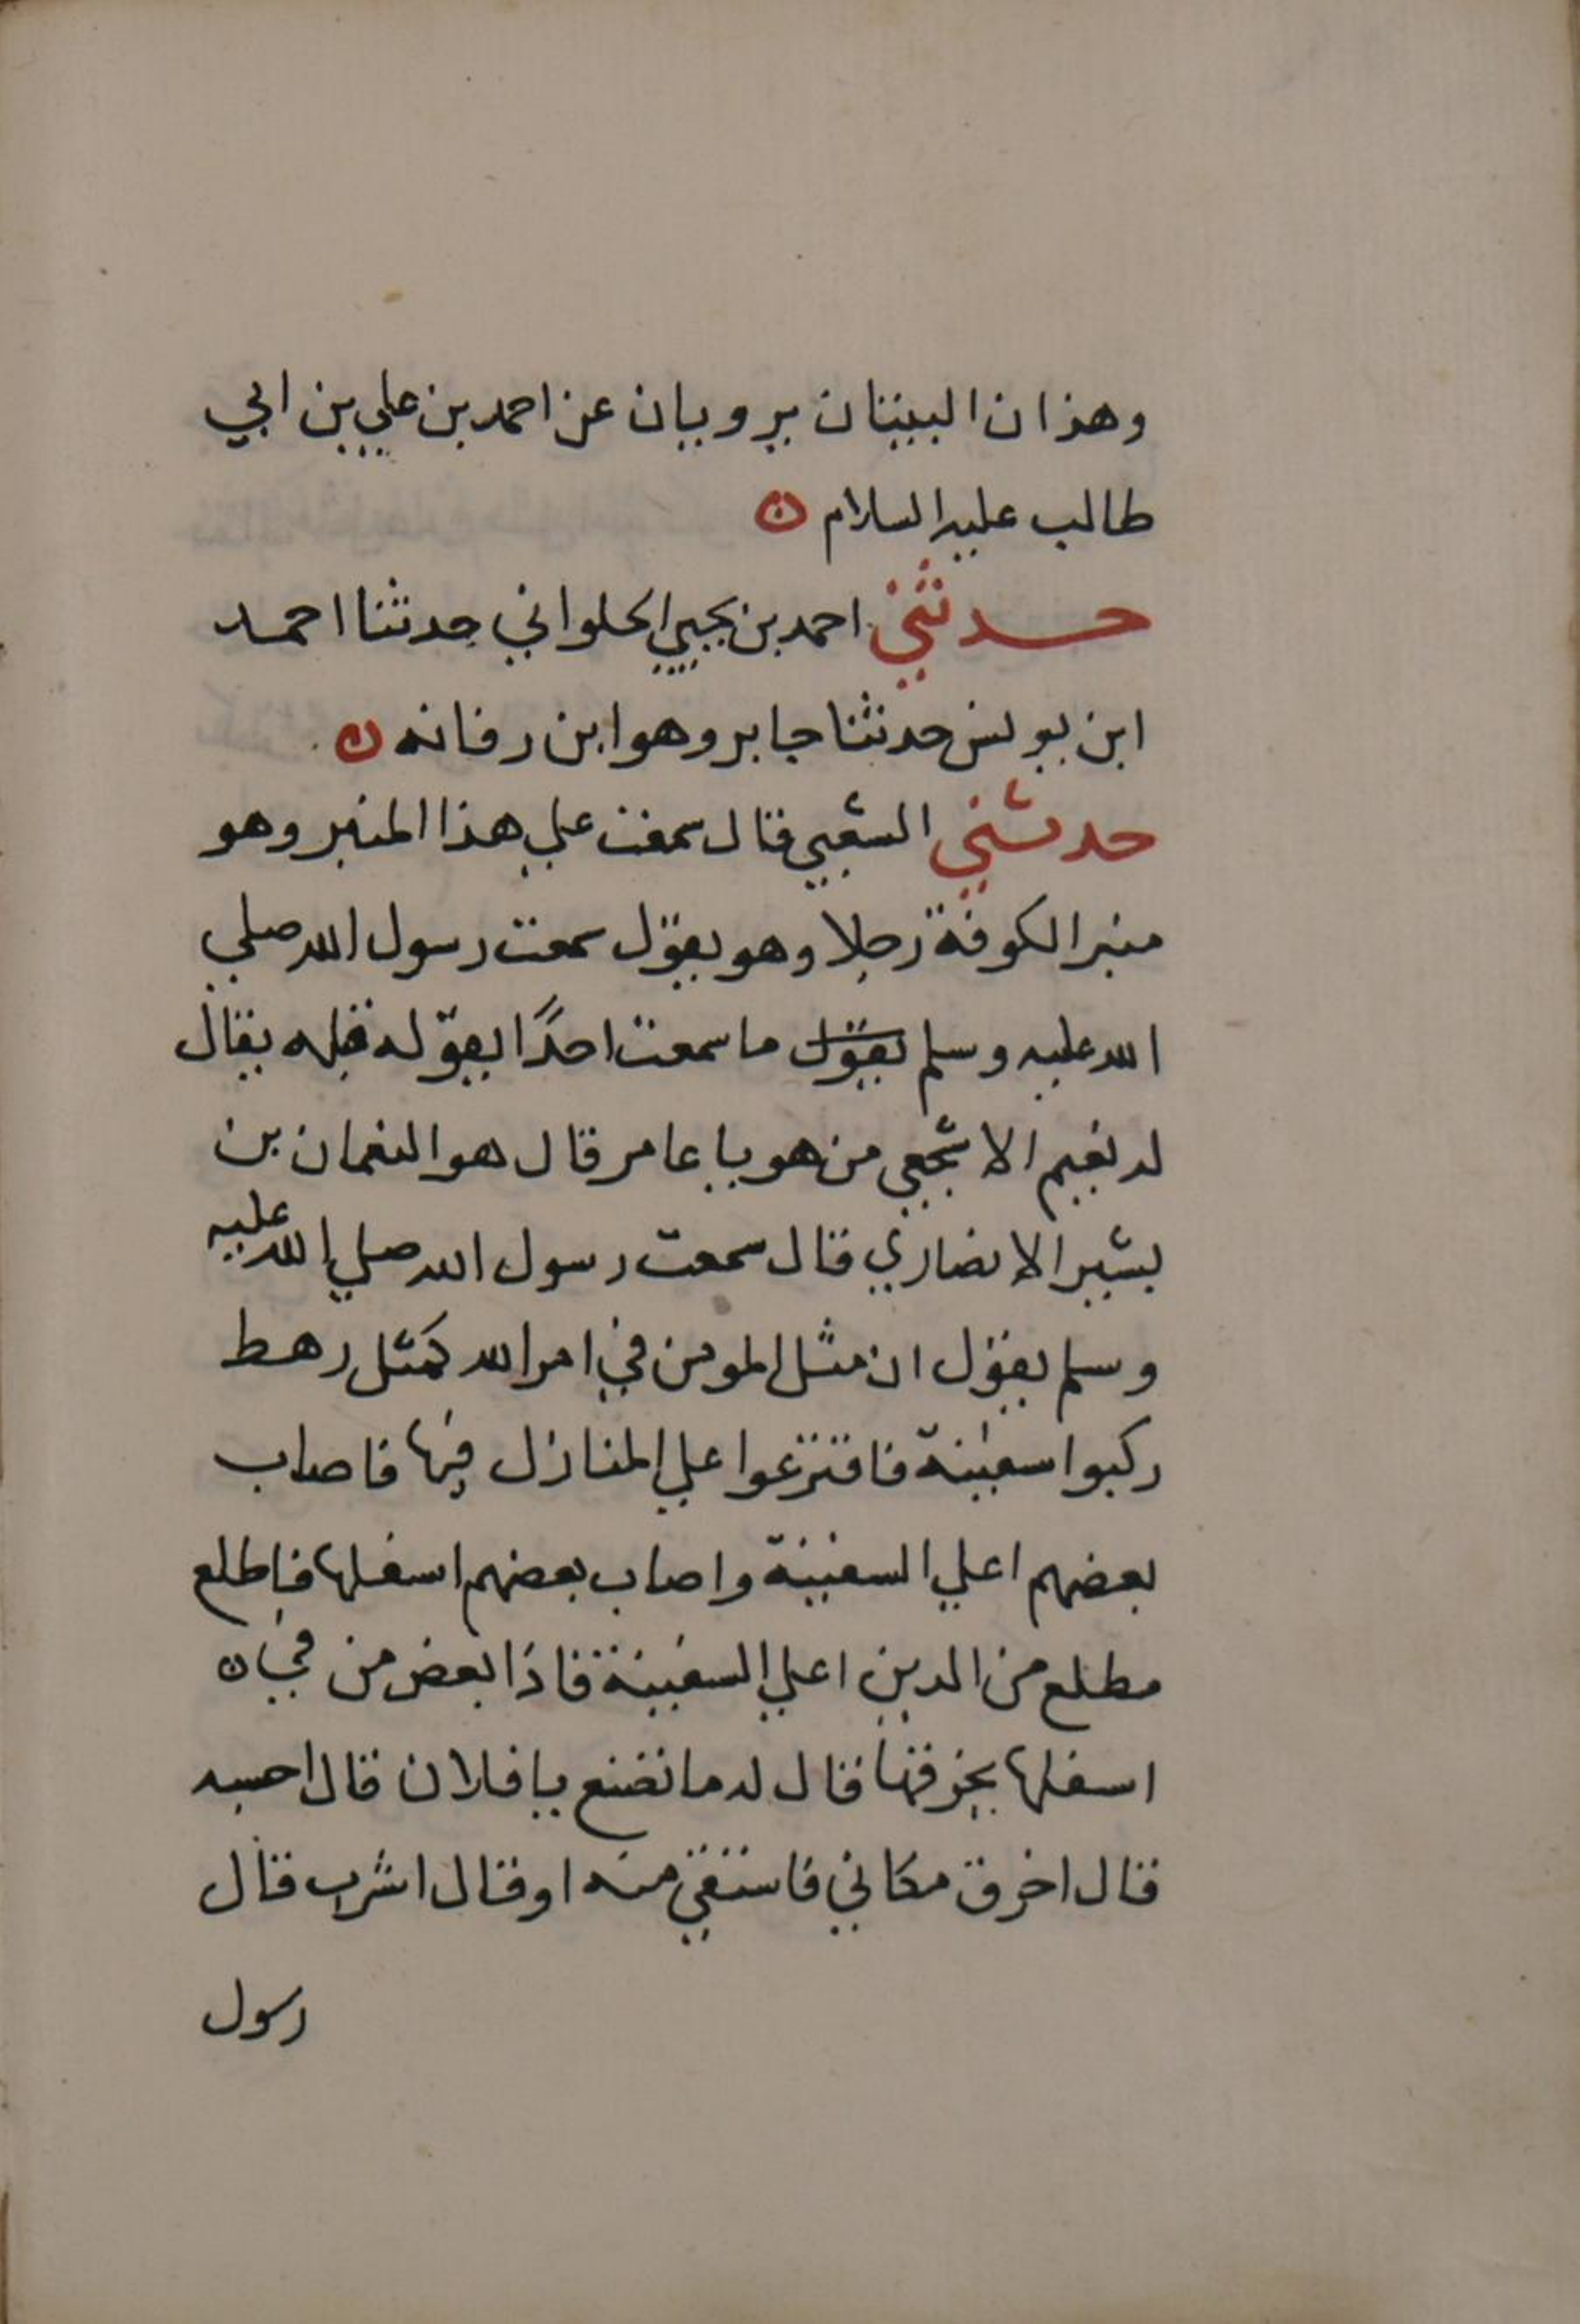 وهذان البيتان يرويان عن احمد بن علي بن ابي
طالب عليه السلام ن
حدثني احمد بن يحيي الحلواني حدثنا احمد
ابن يونس حدثنا جابر وهو ابن رفانه ن
حدثني الشعبي قال سمعت علي هذا المنبر وهو
منبر الكوفة رجلا وهو يقول سمعت رسول الله صلي
الله عليه وسلم يقول ما سمعت احدًا يقوله قبله يقال
له نعيم الاشجعي من هو يا عامر قال هو النعمان بن
بشير الانصاري قال سمعت رسول الله صلي الله عليه
وسلم يقول ان مثل المومن في امر الله كمثل رهط
ركبوا سفينة فاقترعوا علي المنازل فيها فاصاب
بعضهم اعلي السفينة واصاب بعضهم اسفلها فاطلع
مطلع من الدين اعلي السفينة فاذا بعض من في ن
اسفلها يخرقها قال له ما تصنع يا فلان قال احسبه
قال اخرق مكاني فاستقي منه او قال اشرب قال
رسول